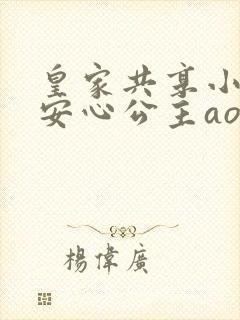 皇家共享小
安心公主ao
楊偉廣